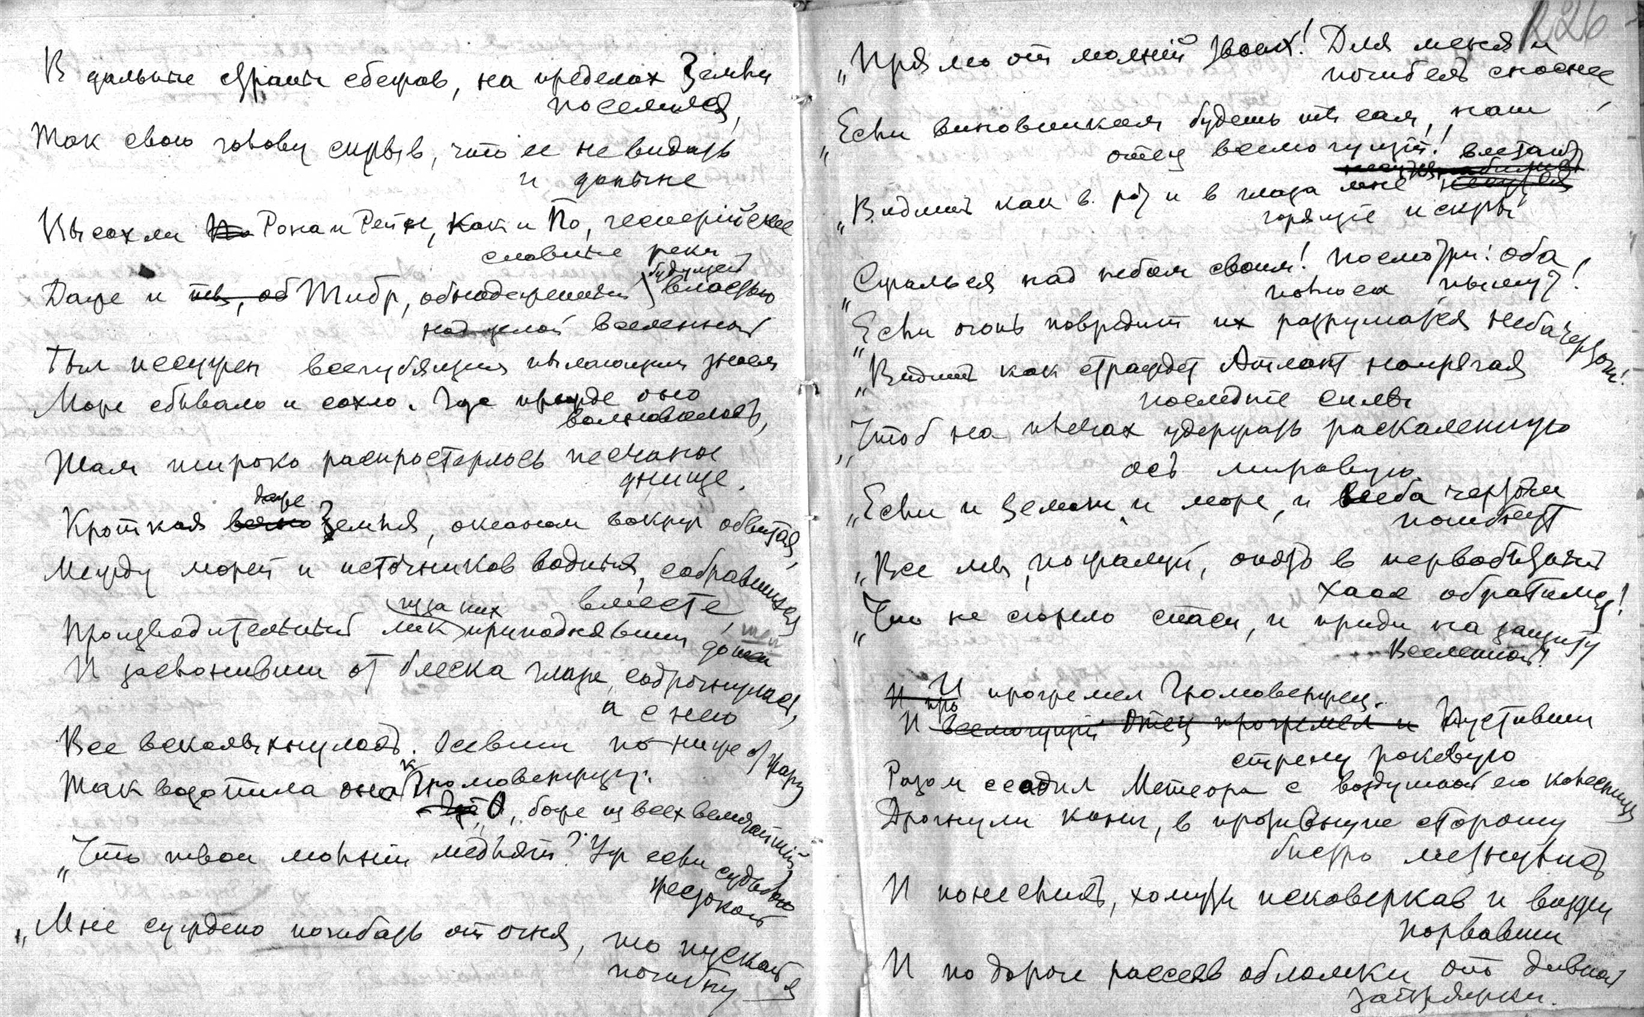 В дальние страны сбежав, на пределах Земли
поселился,
Так свою голову скрыв, что ее не видать
и доныне
Высохли Рона и Рейн, как и По, гесперийские
славные реки
Даже и Тибр, обнадеженный будущей властью
над целой вселенной
Был иссушен всегубящим пылающим зноем
Море сбывало и сохло. Где прежде оно
волновалось,
Там широко распростерлось песчаное
днище.
Кроткая даже Земля, океаном вокруг обвитая,
Между морей и источников водных, собравшихся
вместе,
Производительный лик из за них приподнявши
И заслонивши от блеска глаза, содрогнулася,
а с нею
Все всколыхнулось. Осевши по ниже от жару
Так возопила она к Громовержцу:
"О, боже из всех величайший
"Что твои молнии медлят? Уж если судьбою
жестокой
"Мне суждено погибать от огня, то пускай я
погибну
226
"Прямо от молний твоих! Для меня и
погибель сноснее,
"Если виновником будешь ты сам, наш
отец всемогущий!
"Видишь как в рот и в глаза мне влетают
горящие искры
"Сжалься над небом своим! Посмотри: оба
полюса пышут!
"Если огонь повредит их разрушатся неба чертоги!
"Видишь как страждет Атлант напрягая
последние силы
"Чтоб на плечах удержать раскаленную
ось мировую
"Если и земли и море, и неба чертоги
погибнут
"Все мы, пожалуй, опять в первобытный
хаос обратимся!
"Что не сгорело спаси, и приди на защиту
Вселенной!
И прогремел Громовержец.
И Пустивши
стрелу роковую
Разом ссадил Метеора с воздушной его колесницы
Дрогнули кони, в противную сторону
быстро метнулись
И понеслись, хомуты исковеркав и вожжи
порвавши
И по дороге рассеяв обломки от дивной
запряжки.